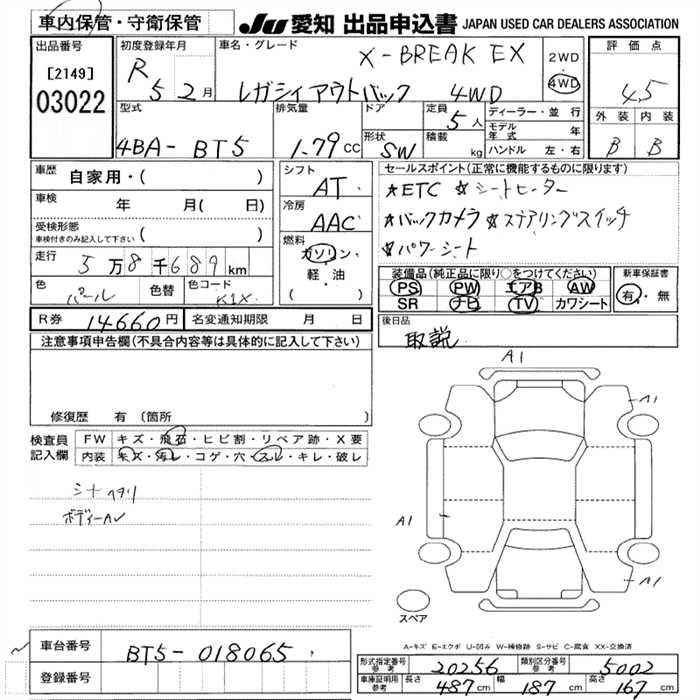 車内保管・守衛保管 JU 愛知 出品申込書 JAPAN USED CAR DEALERS ASSOCIATION
出品番号 初度登録年月 車名・グレード X-BREAK EX 2WD 評価点
[2149] R 5 2月 レガシィアウトバック 4WD 4WD 4.5
03022 型式 排気量 ドア 定員 5人 ディーラー・並行 外装 内装
4BA- BT5 1.79CC 形状 SW 積載 kg モデル年式 年 B B
ハンドル 左・右
車歴 自家用・( ) シフト AT セールスポイント(正常に機能するものに限ります)
車検 年 月( 日) 冷房 AAC ★ETC ★シートヒーター
受検形態 ( ) ★バックカメラ ★ステアリングスイッチ
車検付きのみ記入して下さい 燃料 ガソリン・ ★パワーシート
走行 5万8千689km 軽・油 装備品(純正品に限り○をつけてください) 新車保証書
色 パール 色替 色コード K1X ( ) PS PW エアB AW 有・無
SR ナビ TV カワシート
R券 14660円 名変通知期限 月 日 後日品
注意事項申告欄(不具合内容等は具体的に記入して下さい) 取説
A1
A1
修復歴 有 (箇所
検査員 FW キズ・飛石・ヒビ割・リペア跡・X要
記入欄 内装 キズ・汚レ・コゲ・穴・スレ・キレ・破レ
シートヘタリ
ボディーAV
A1
A1
スペア
A-キズ E-エクボ U-凹み W-補修跡 S-サビ C-腐食 XX-交換済
車台番号 BT5-018065
登録番号
形式指定番号 参考 20256 類別区分番号 参考 5002
車庫証明用 参考 長さ 487cm 幅 187cm 高さ 167cm